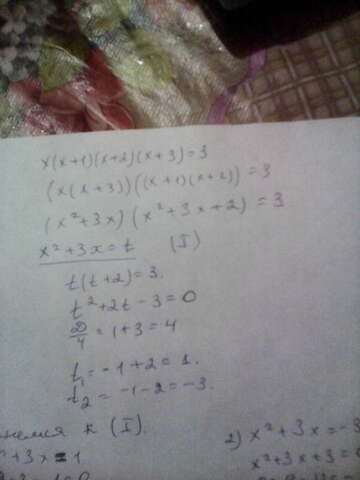 x(x+1)(x+2)(x+3)=3
(x(x+3))((x+1)(x+2))=3
(x²+3x)(x²+3x+2)=3
x²+3x=t (I)
t(t+2)=3.
t²+2t-3=0
D/4=1+3=4
t₁=-1+2=1.
t₂=-1-2=-3.
к (I).
²+3x=1
2) x²+3x=-3
x²+3x+3=